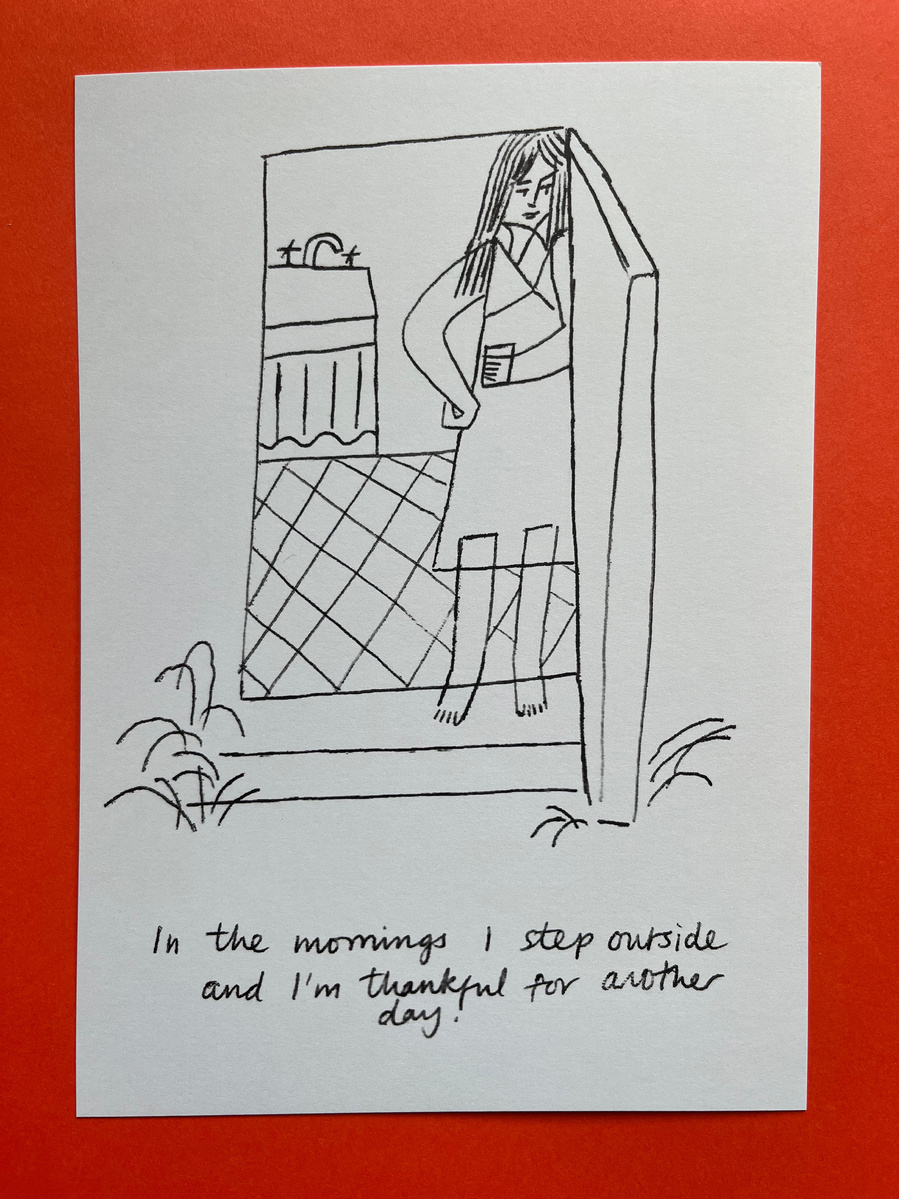 In the mornings I step outside
and I'm thankful for another
day.